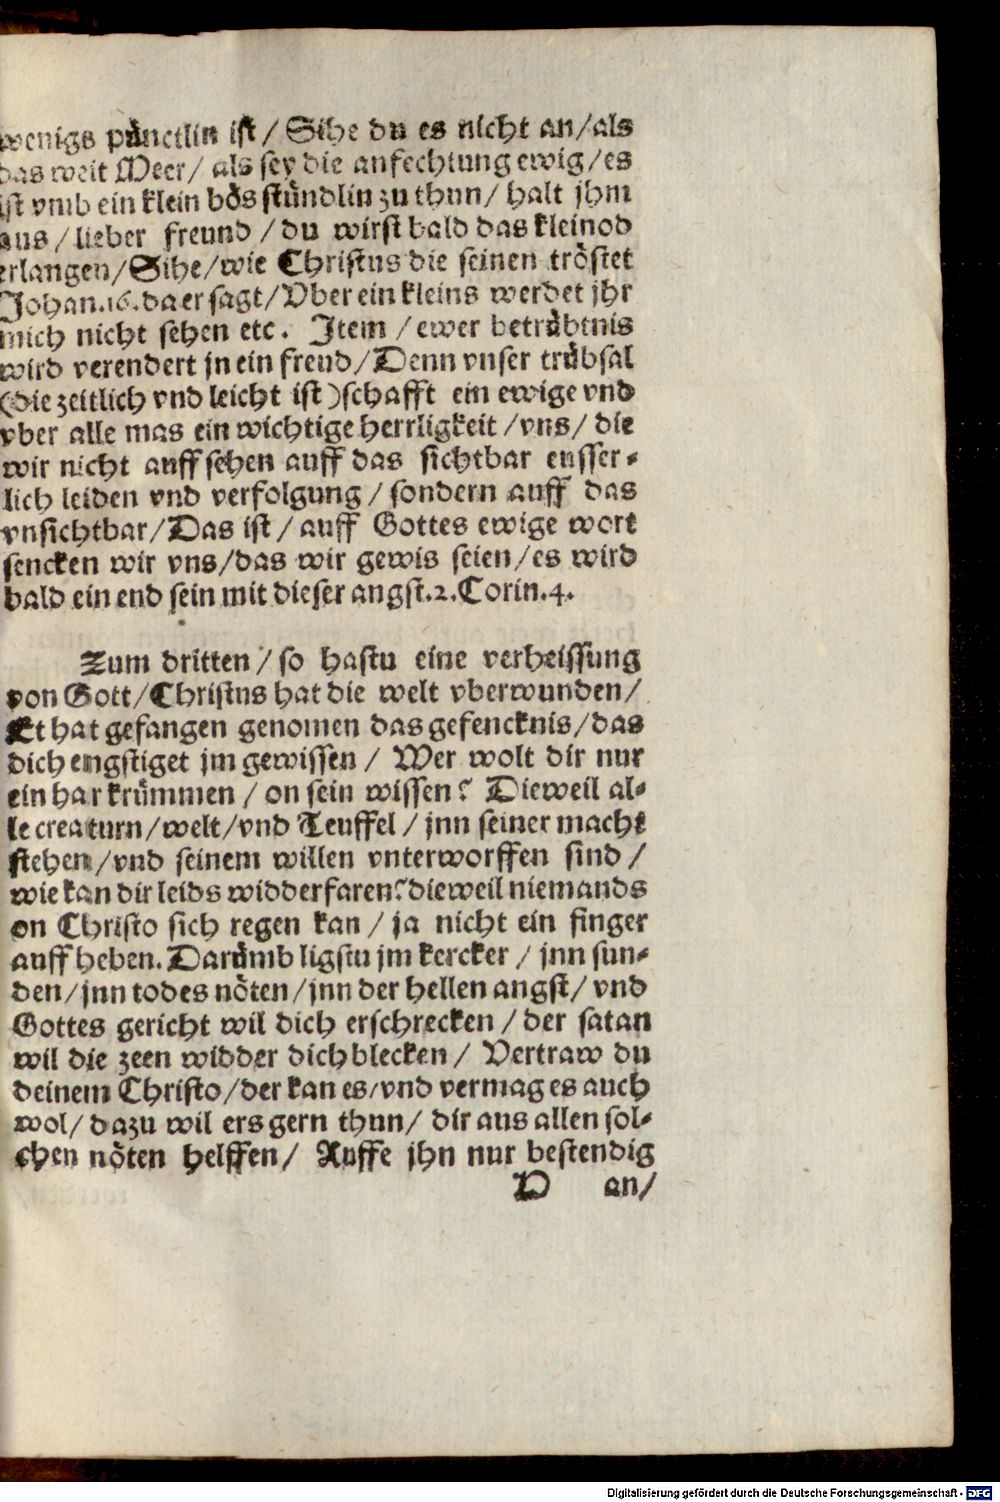 wenigs pünctlin ist / Sihe du es nicht an / als
das weit Meer / als sey die anfechtung ewig / es
ist vmb ein klein bös stündlin zu thun / halt jhm
aus / lieber freund / du wirst bald das kleinod
erlangen / Sihe / wie Christus die seinen tröstet
Johan.16. da er sagt / Vber ein kleins werdet jhr
mich nicht sehen etc. Item / ewer betrübtnis
wird verendert jn ein freud / Denn vnser trübsal
(die zeitlich vnd leicht ist) schafft ein ewige vnd
vber alle mas ein wichtige herrligkeit / vns / die
wir nicht auff sehen auff das sichtbar eusser-
lich leiden vnd verfolgung / sondern auff das
vnsichtbar / Das ist / auff Gottes ewige wort
sencken wir vns / das wir gewis seien / es wird
bald ein end sein mit dieser angst. 2. Corin. 4.
Zum dritten / so hastu eine verheissung
von Gott / Christus hat die welt vberwunden /
Et hat gefangen genomen das gefencknis / das
dich engstiget jm gewissen / Wer wolt dir nur
ein har krümmen / on sein wissen? Dieweil al-
le creaturn / welt / vnd Teuffel / jnn seiner macht
stehen / vnd seinem willen vnterworffen sind /
wie kan dir leids widderfaren? dieweil niemands
on Christo sich regen kan / ja nicht ein finger
auff heben. Darümb ligstu jm kercker / jnn sun-
den / jnn todes nöten / jnn der hellen angst / vnd
Gottes gericht wil dich erschrecken / der satan
wil die zeen widder dich blecken / Vertraw du
deinem Christo / der kan es / vnd vermag es auch
wol / dazu wil ers gern thun / dir aus allen sol-
chen nöten helffen / Ruffe jhn nur bestendig
D an /
Digitalisierung gefördert durch die Deutsche Forschungsgemeinschaft - DFG